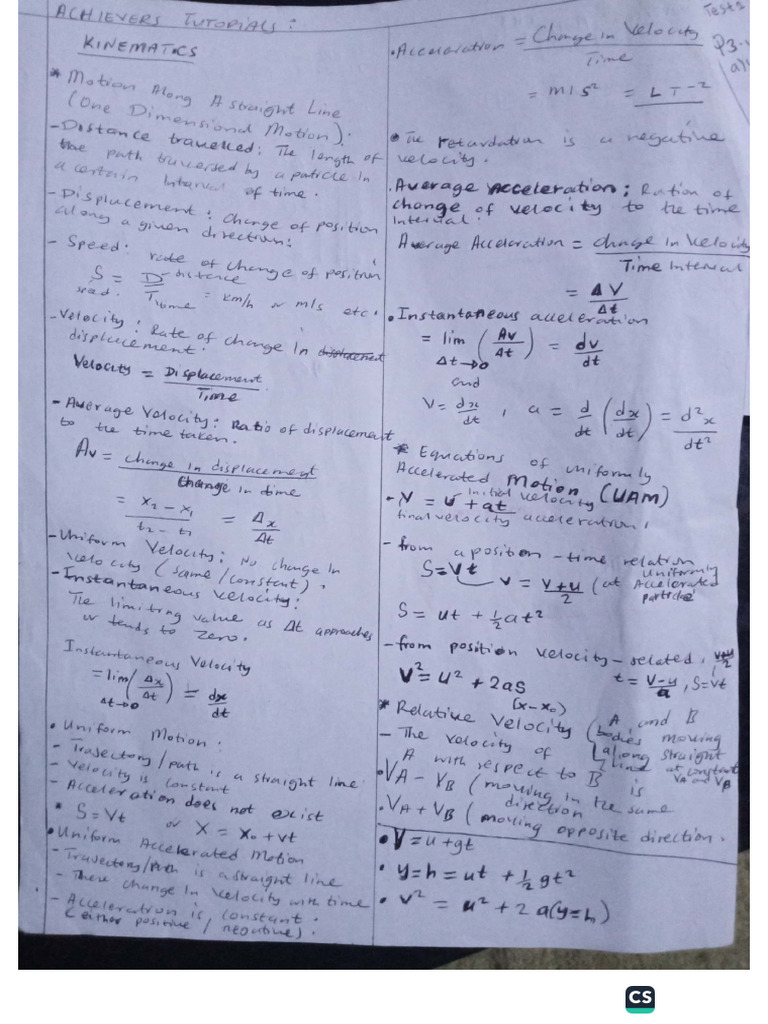 ACHIEVERS TUTORIALS:
KINEMATICS
* Motion Along A straight Line
(One Dimensional Motion):
- Distance travelled: The length of
the path traversed by a paticle in
a certain interval of time.
- Displacement: Change of position
along a given direction:
- Speed: rate of change of position
S = Distance / Time = km/h or m/s etc.
speed.
- Velocity: Rate of change In
displacement.
Velocity = Displacement / Time
- Average Velocity: Ratio of displacement
to the time taken.
Av = change in displacement / Change in time
= x₂ - x₁ / t₂ - t₁ = Δx / Δt
- Uniform Velocity: No change In
velocity (same/constant).
- Instantaneous Velocity:
The limiting value as Δt approaches
or tends to zero.
Instantaneous Velocity
= lim Δt→0 (Δx / Δt) = dx / dt
• Uniform Motion:
- Trajectory/path is a straight line
- Velocity is constant
- Acceleration does not exist
* S = Vt or X = x₀ + vt
• Uniform Accelerated Motion
- Trajectory/Path is a straight line
- There change In velocity with time
- Acceleration is constant.
(either positive / negative).
Test 1
P3-
• Acceleration = Change in Velocity / Time
= m/s² = LT⁻²
• The retardation is a negative
velocity.
• Average Acceleration: Ration of
change of velocity to the time
Interval.
Average Acceleration = change in Velocity / Time Interval
= ΔV / Δt
• Instantaneous acceleration
= lim Δt→0 (Δv / Δt) = dv / dt
and
V = dx / dt , a = d / dt (dx / dt) = d²x / dt²
* Equations of uniformly
Accelerated Motion (UAM)
- V = U + at
initial velocity
final velocity acceleration
- from a position - time relation
S = Vt
V = V+U / 2 (at Uniformly Accelerated particle
S = ut + 1/2 at²
- from position velocity - related, V+U / 2
V² = U² + 2aS t = V-U / a , S = Vt
(x - x₀)
* Relative Velocity (A and B bodies moving along straight line at constant VA and VB
- The velocity of
A with respect to B is
• VA - VB (moving in the same direction
• VA + VB (moving opposite direction.
• V = u + gt
• y=h = ut + 1/2 gt²
• v² = u² + 2a(y=h)
CS